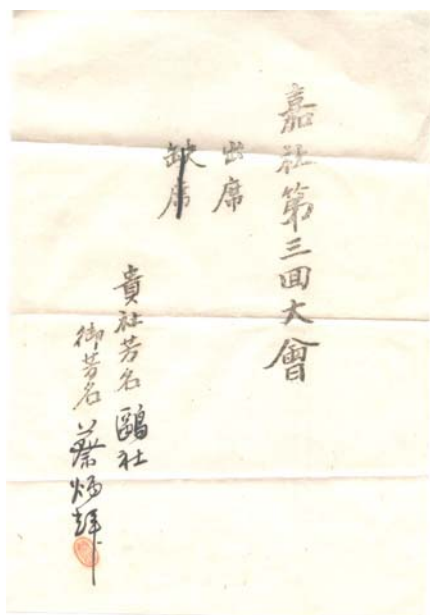 嘉社第三回大會
出席
缺席
貴社芳名 鷗社
御芳名 蔡炳輝